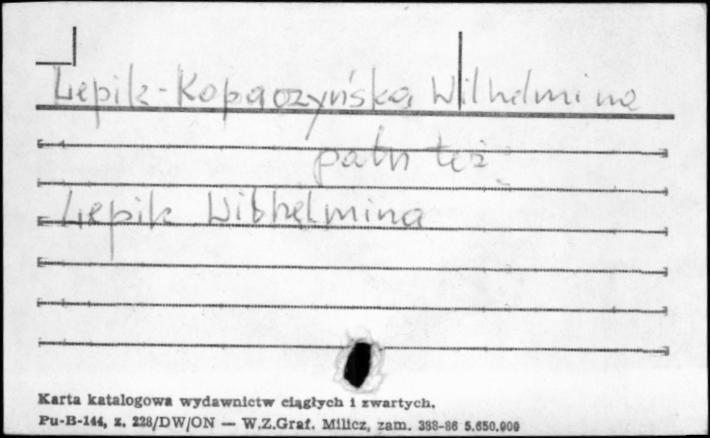 Lepik-Kopaczyńska Wilhelmina
patrz też
Lepik Wilhelmina
Karta katalogowa wydawnictw ciągłych i zwartych.
Pu-B-144, z. 228/DW/ON — W.Z.Graf. Milicz, zam. 388-86 5.650.000